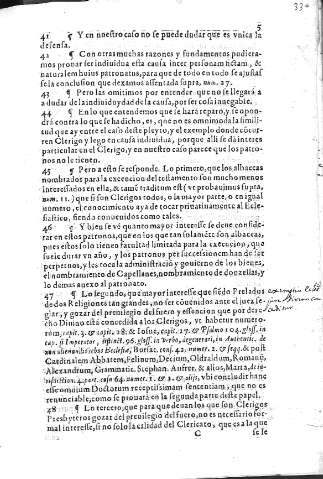 5
41 ¶ Y en nuestro caso no se puede dudar que es vnica la
defensa.
42 ¶ Con otras muchas razones y fundamentos pudiera-
mos prouar ser indiuidua esta causa inter personam fictam, &
naturalem huius patronatus, para que de todo en todo se ajustas
se la conclusion que dexamos assentada supra, num. 27.
43 ¶ Pero las omitimos por entender que no se llegará a
a dudar de la indiuiduydad de la causa, por ser cosa innegable.
44 ¶ En lo que entendemos que se hará reparo, y se opon-
drá contra lo que se ha dicho, es, que no es omnimoda la simili-
tud que ay entre el caso deste pleyto, y el exemplo donde cocur-
ren Clerigo y lego en causa indiuidua, porque alli se da interes
particular en el Clerigo, y en nuestro caso parece que los patro-
nos no le tienen.
45 ¶ Pero a esto se responde. Lo primero, que los albaceas
nombrados para la execucion del testamento son mucho menos
interessados en ella, & tamē traditum est (vt probauimus supra,
num. 11.) que si son Clerigos todos, o la mayor parte, o en igual
numero, el conocimiento aya de tocar priuatiuamente al Ecle-
siastico, siendo conuenidos como tales.
46 ¶ Y bien se vé quanto mayor interesse se deue conside-
rar en estos patronos, que en los que tan solamēte son albaceas,
pues estos solo tienen facultad limitada para la execucion, que
suele durar vn año, y los patronos por successionem han de ser
perpetuos, y les toca la administració y gouierno de los bienes,
el nombramiento de Capellanes, nombramiento de dōzellas, y
lo demas anexo al patronato.
47 ¶ Lo segundo, que mayor interesse que siēdo Prelados
de dos Religiones tan grandes, no ser conuenidos ante el juez se-
glar, y gozar del preuilegio del fuero y essencion que por dere-
cho Diuino está concedida a los Clerigos, vt habetur numero-
rum, cap. 3. & 18. & Iosue, cap. 17. & Psalmo 104. gloss. in
cap. si Imperator, distinct. 96. gloss. in verbo,
non alienan. rebus Ecclesiæ, Boriac. & post
Cardinalem Abbatem, Felinum, Decium, Oldraldum, Romanum,
Alexandrum, Grammatic. Stephan. Aufrer. & alios, Marta, de iu-
risdictione 4. part. casu 64. numer. 1. & 2. & alijs, vbi concludit hanc
esse omnium Doctorum receptissimam sententiam, que no es
renunciable, como se prouará en la segunda parte deste papel.
48 ¶ Lo tercero, que para que deuan los que son Clerigos
Presbyteros gozar del preuilegio del fuero, no es necessario for-
mal interesse, si no solo la calidad del Clericato, que es a la que
C se le